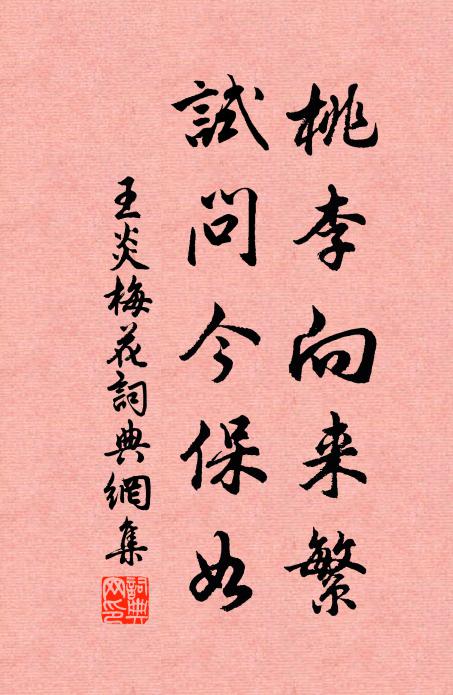 桃李向来繁
試問今保如
王炎梅花詞典網集
詞典網印